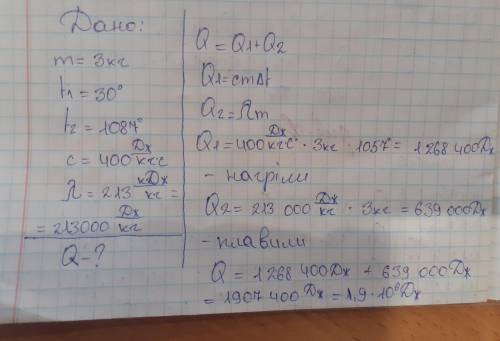 Дано:
m = 3кг
t₁ = 30°
t₂ = 1087°
c = 400 Дж/кг°С
λ = 213 кДж/кг =
= 213000 Дж/кг
Q - ?
Q = Q₁ + Q₂
Q₁ = cmΔt
Q₂ = λm
Q₁ = 400 Дж/кг°С · 3кг · 1057° = 1 268 400 Дж
- нагріли
Q₂ = 213 000 Дж/кг · 3кг = 639 000 Дж
- плавили
Q = 1 268 400 Дж + 639 000 Дж
= 1907 400 Дж = 1,9 · 10⁶ Дж